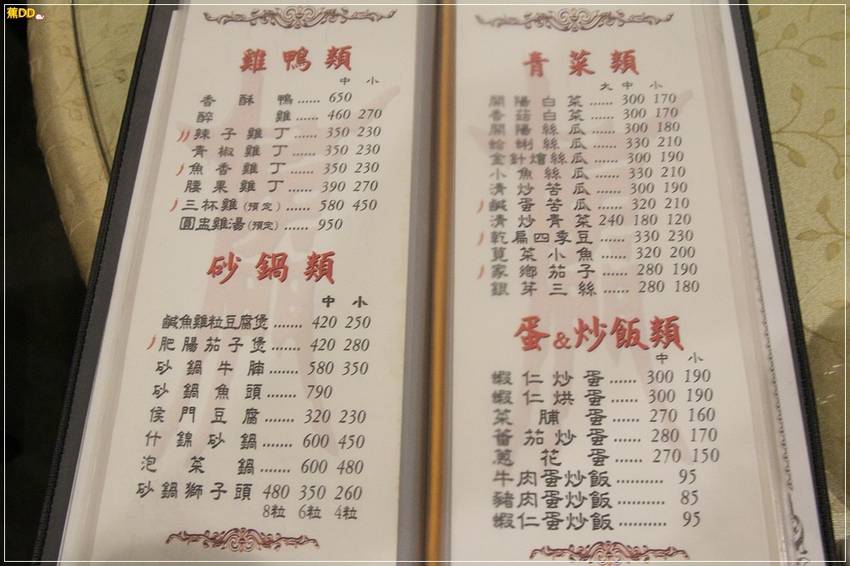 蕉DD
雞鴨類
中 小
香酥鴨...... 650
醉雞...... 460 270
辣子雞丁...... 350 230
青椒雞丁...... 350 230
魚香雞丁...... 350 230
腰果雞丁...... 390 270
三杯雞(預定)...... 580 450
圓盅雞湯(預定)...... 950
砂鍋類
中 小
鹹魚雞粒豆腐煲....... 420 250
肥腸茄子煲....... 420 280
砂鍋牛腩....... 580 350
砂鍋魚頭....... 790
侯門豆腐....... 320 230
什錦砂鍋....... 600 450
泡菜鍋....... 600 480
砂鍋獅子頭 480 350 260
8粒 6粒 4粒
青菜類
大 中 小
開陽白菜...... 300 170
香菇白菜...... 300 170
開陽絲瓜...... 300 180
蛤蜊絲瓜...... 330 210
金針燴絲瓜...... 300 190
小魚絲瓜...... 330 210
清炒苦瓜...... 300 190
鹹蛋苦瓜...... 320 210
清炒青菜 240 180 120
乾扁四季豆...... 330 230
莧菜小魚...... 320 200
家鄉茄子...... 280 190
銀芽三絲...... 280 180
蛋&炒飯類
中 小
蝦仁炒蛋...... 300 190
蝦仁烘蛋...... 300 190
菜脯蛋...... 270 160
蕃茄炒蛋...... 280 170
蔥花蛋...... 270 150
牛肉蛋炒飯.......... 95
豬肉蛋炒飯.......... 85
蝦仁蛋炒飯.......... 95